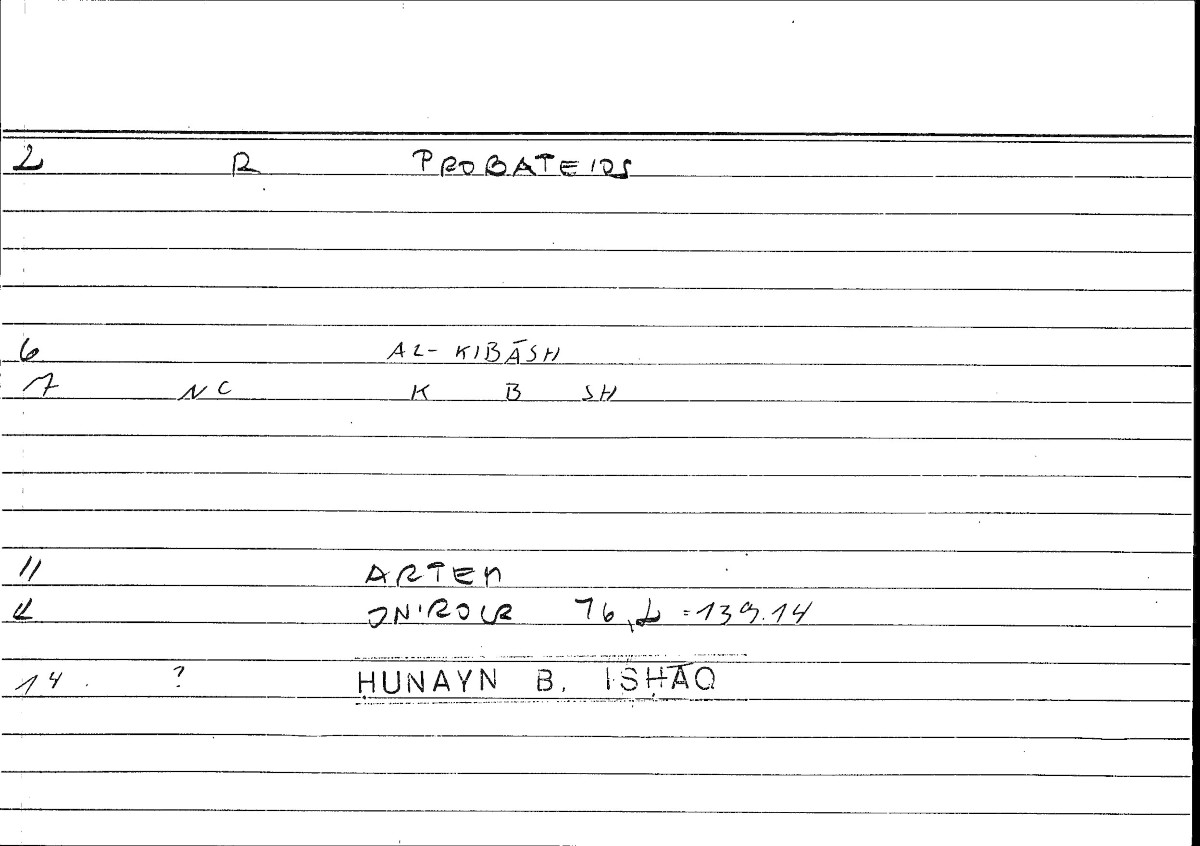 2 R PROBATEIOS
6 AL-KIBĀSH
7 NC K B SH
11 ARTEM
ONIROCR 76,2 = 139.14
14. ? ḤUNAYN B. ISḤĀQ